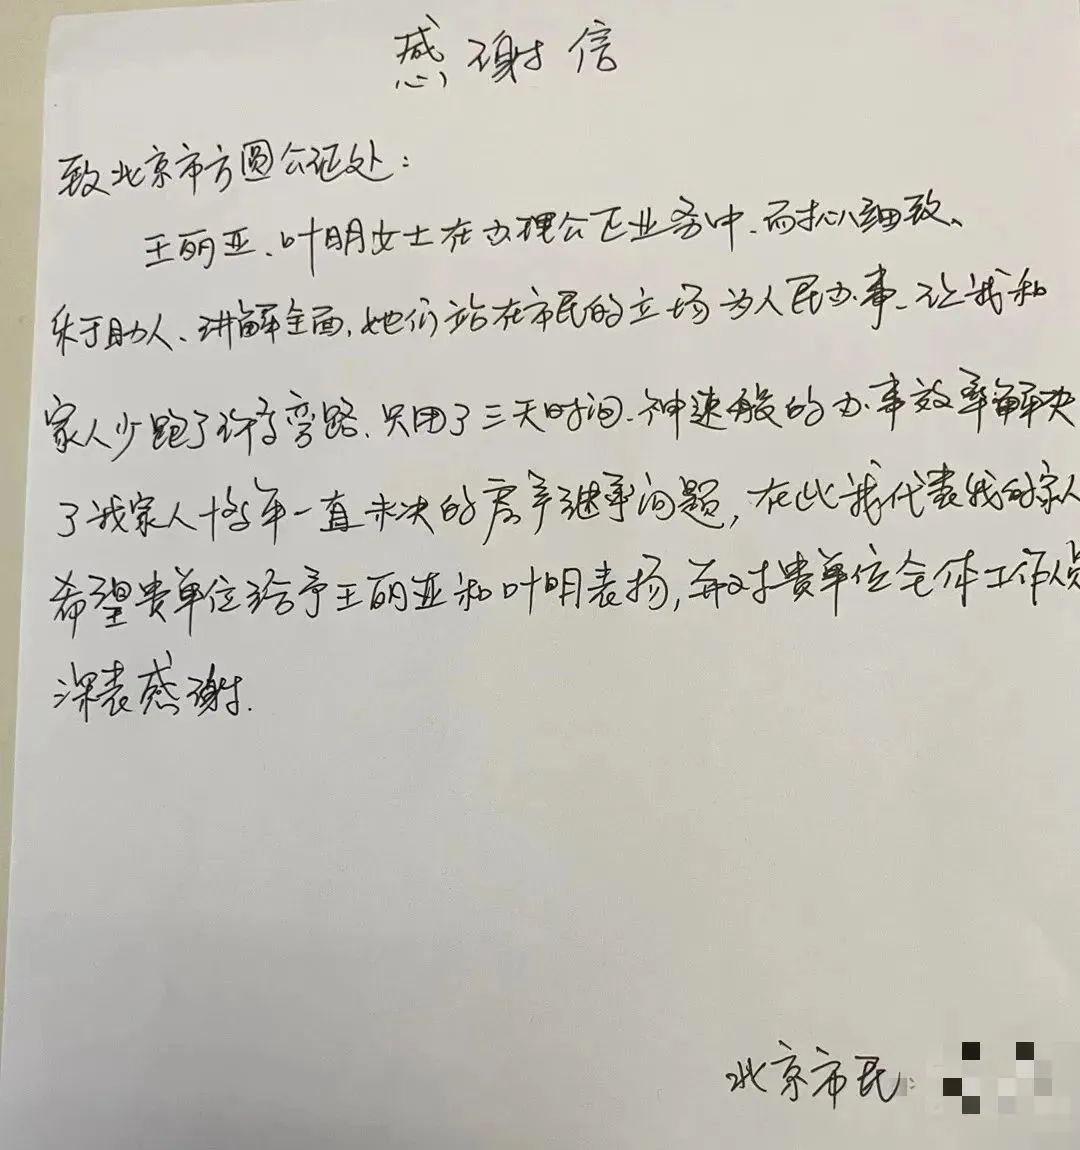 感谢信
致北京市方圆公证处：
王丽亚、叶明女士在办理公正业务中、耐心细致、
乐于助人、讲解全面，她们站在市民的立场为人民办事、让我和
家人少跑了许多弯路、只用了三天时间、神速般的办事效率解决
了我家人十多年一直未决的房产继承问题，在此我代表我的家人
希望贵单位给予王丽亚和叶明表扬，并对贵单位全体工作人员
深表感谢.
北京市民：